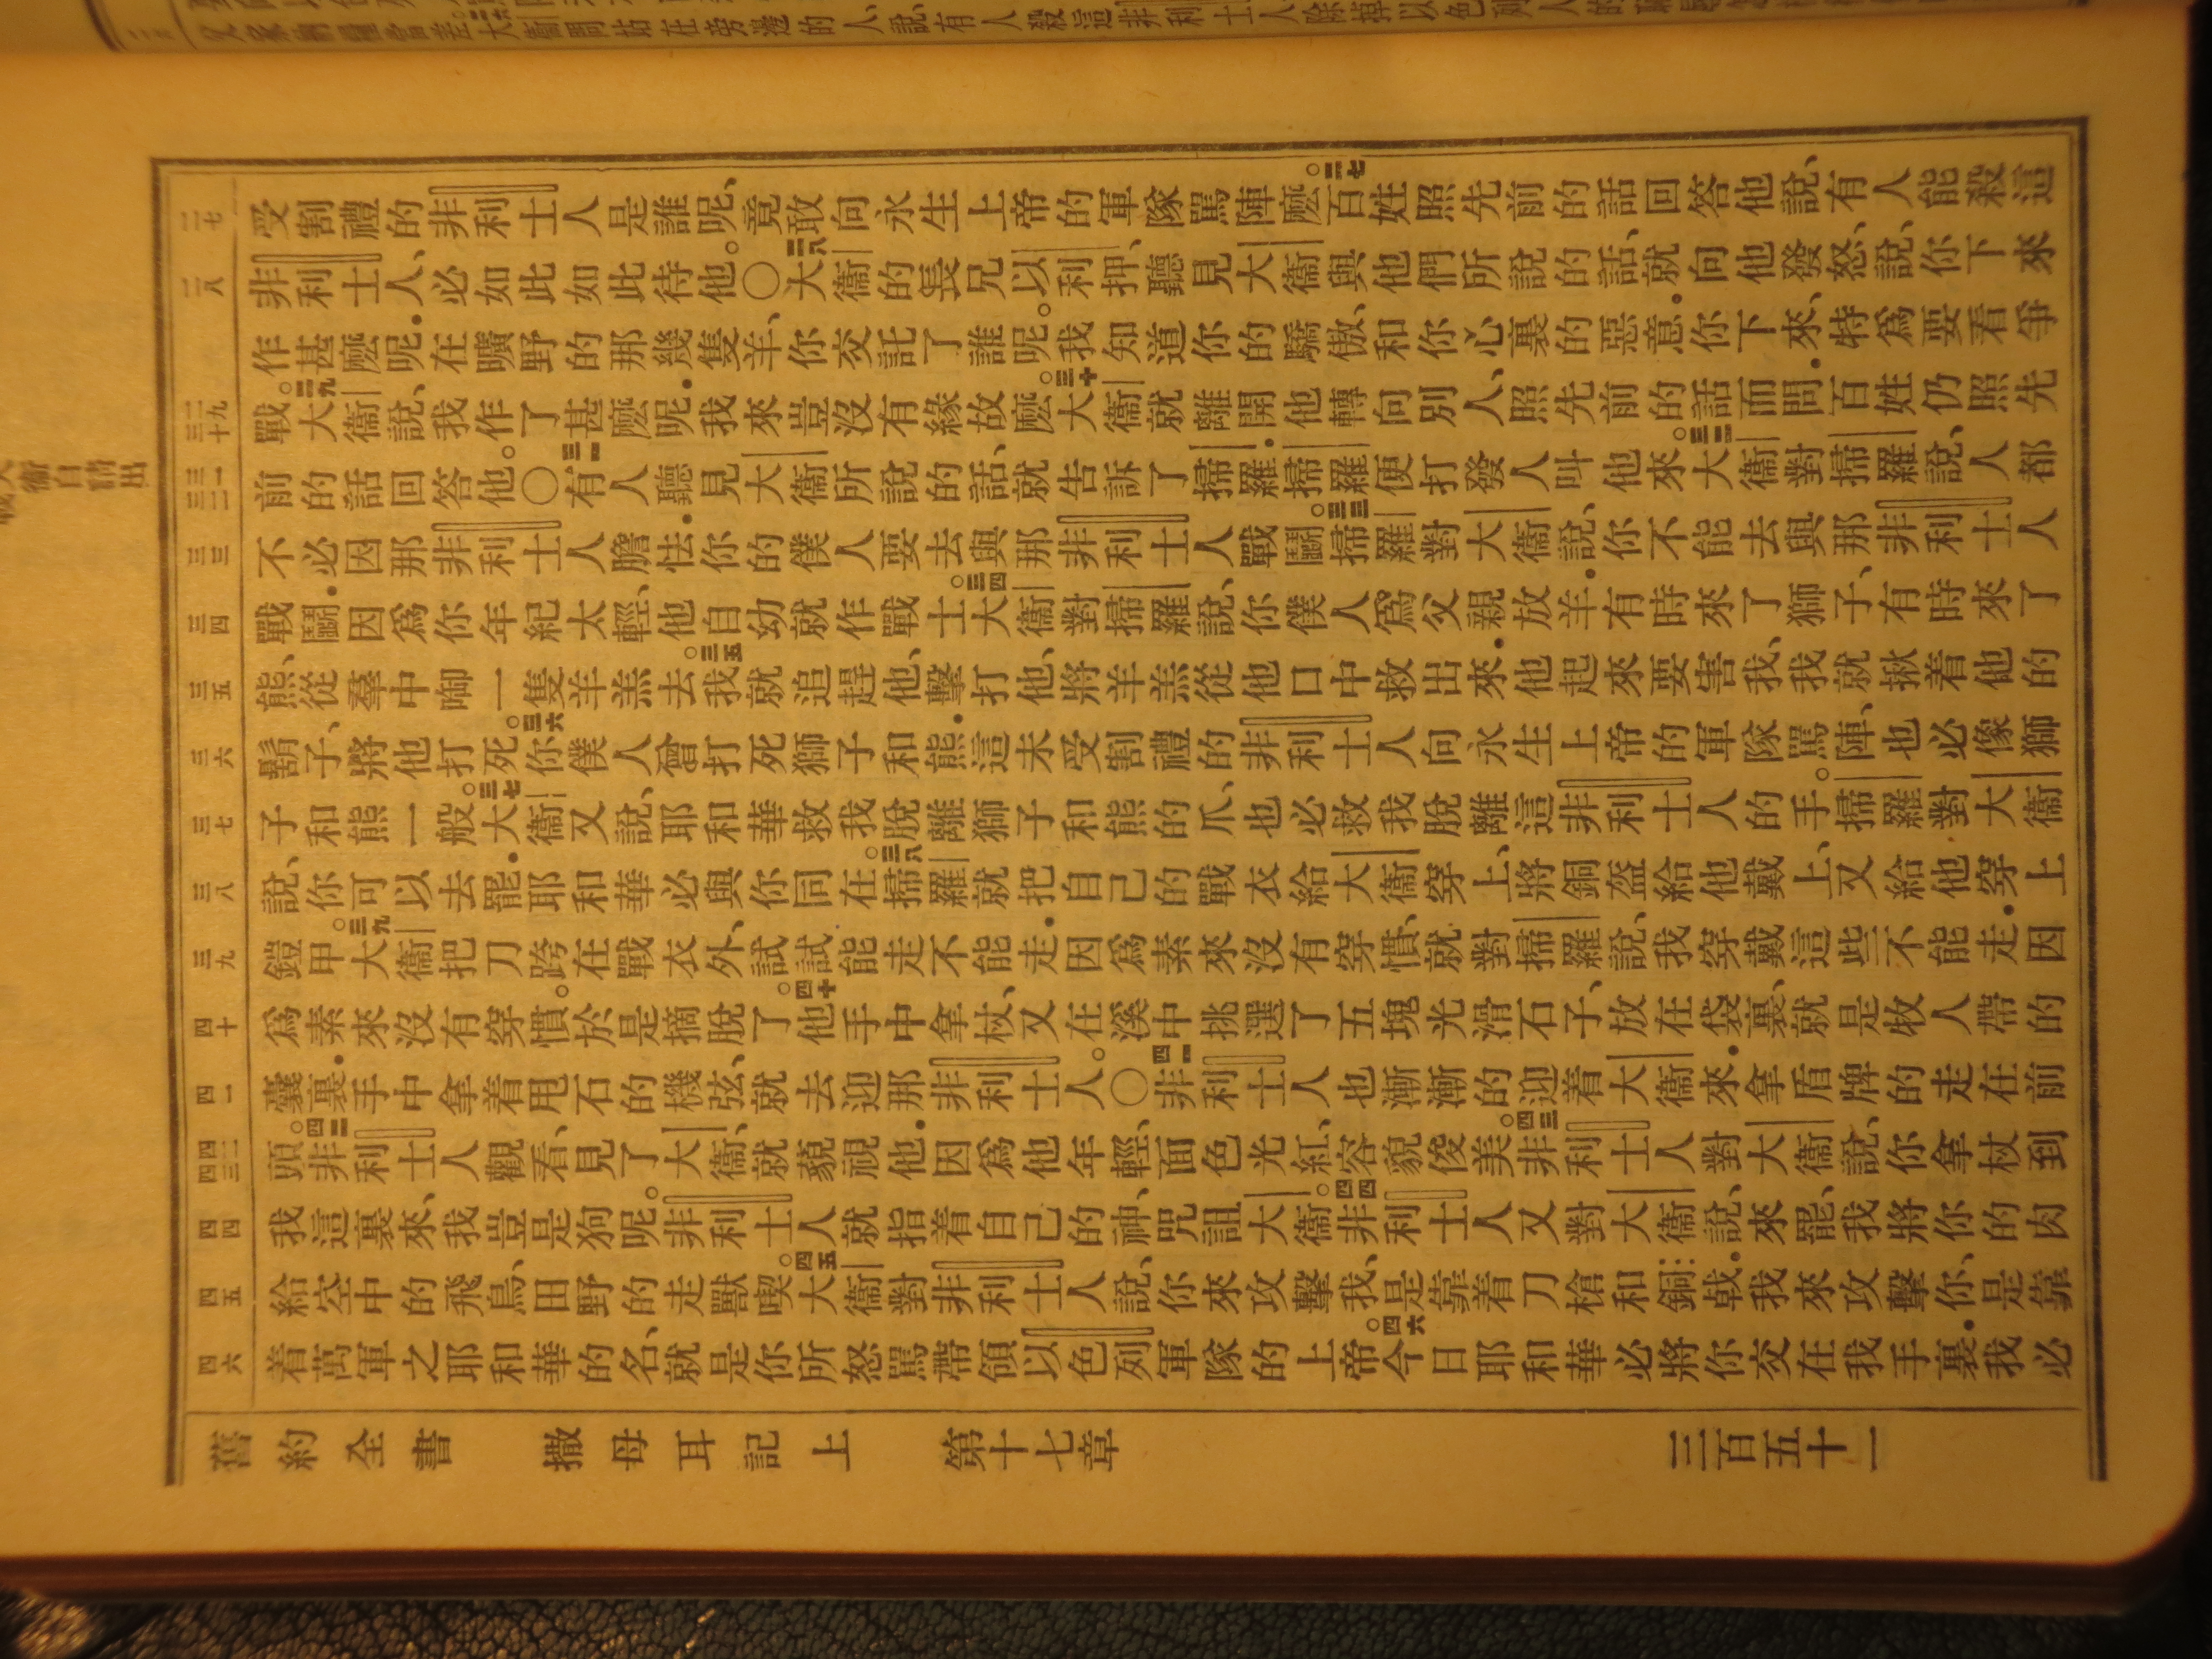 受割禮的非利士人是誰呢、竟敢向永生上帝的軍隊罵陣麽。二七百姓照先前的話回答他說、有人能殺這
非利士人、必如此如此待他。○二八大衞的長兄以利押、聽見大衞與他們所說的話、就向他發怒、說、你下來
作甚麽呢．在曠野的那幾隻羊、你交託了誰呢。我知道你的驕傲、和你心裏的惡意．你下來、特爲要看爭
戰。二九大衞說、我作了甚麽呢．我來豈沒有緣故麽。三十大衞就離開他轉向別人、照先前的話而問．百姓仍照先
前的話回答他。○三一有人聽見大衞所說的話、就告訴了掃羅．掃羅便打發人叫他來。三二大衞對掃羅說、人都
不必因那非利士人膽怯．你的僕人要去與那非利士人戰鬬。三三掃羅對大衞說、你不能去與那非利士人
戰鬬．因爲你年紀太輕、他自幼就作戰士。三四大衞對掃羅說、你僕人爲父親放羊．有時來了獅子、有時來了
熊、從羣中啣一隻羊羔去。三五我就追趕他、擊打他、將羊羔從他口中救出來．他起來要害我、我就揪着他的
鬍子、將他打死。三六你僕人曾打死獅子和熊．這未受割禮的非利士人向永生上帝的軍隊罵陣、也必像獅
子和熊一般。三七大衞又說、耶和華救我脫離獅子和熊的爪、也必救我脫離這非利士人的手。掃羅對大衞
說、你可以去罷．耶和華必與你同在。三八掃羅就把自己的戰衣給大衞穿上、將銅盔給他戴上、又給他穿上
鎧甲。三九大衞把刀跨在戰衣外、試試能走不能走．因爲素來沒有穿慣、就對掃羅說、我穿戴這些不能走．因
爲素來沒有穿慣。於是摘脫了。四十他手中拿杖、又在溪中挑選了五塊光滑石子、放在袋裏、就是牧人帶的
囊裏．手中拿着甩石的機弦、就去迎那非利士人。○四一非利士人也漸漸的迎着大衞來．拿盾牌的走在前
頭。四二非利士人觀看、見了大衞、就藐視他．因爲他年輕、面色光紅、容貌俊美。四三非利士人對大衞說、你拿杖到
我這裏來、我豈是狗呢。非利士人就指着自己的神、咒詛大衞。四四非利士人又對大衞說、來罷、我將你的肉
給空中的飛鳥、田野的走獸喫。四五大衞對非利士人說、你來攻擊我、是靠着刀槍和銅戟．我來攻擊你、是靠
着萬軍之耶和華的名、就是你所怒罵帶領以色列軍隊的上帝。四六今日耶和華必將你交在我手裏．我必
二七
二八
二九 三十
三一 三二
三三
三四
三五
三六
三七
三八
三九
四十
四一
四二 四三
四四
四五
四六
舊約全書 撒母耳記上 第十七章 三百五十一